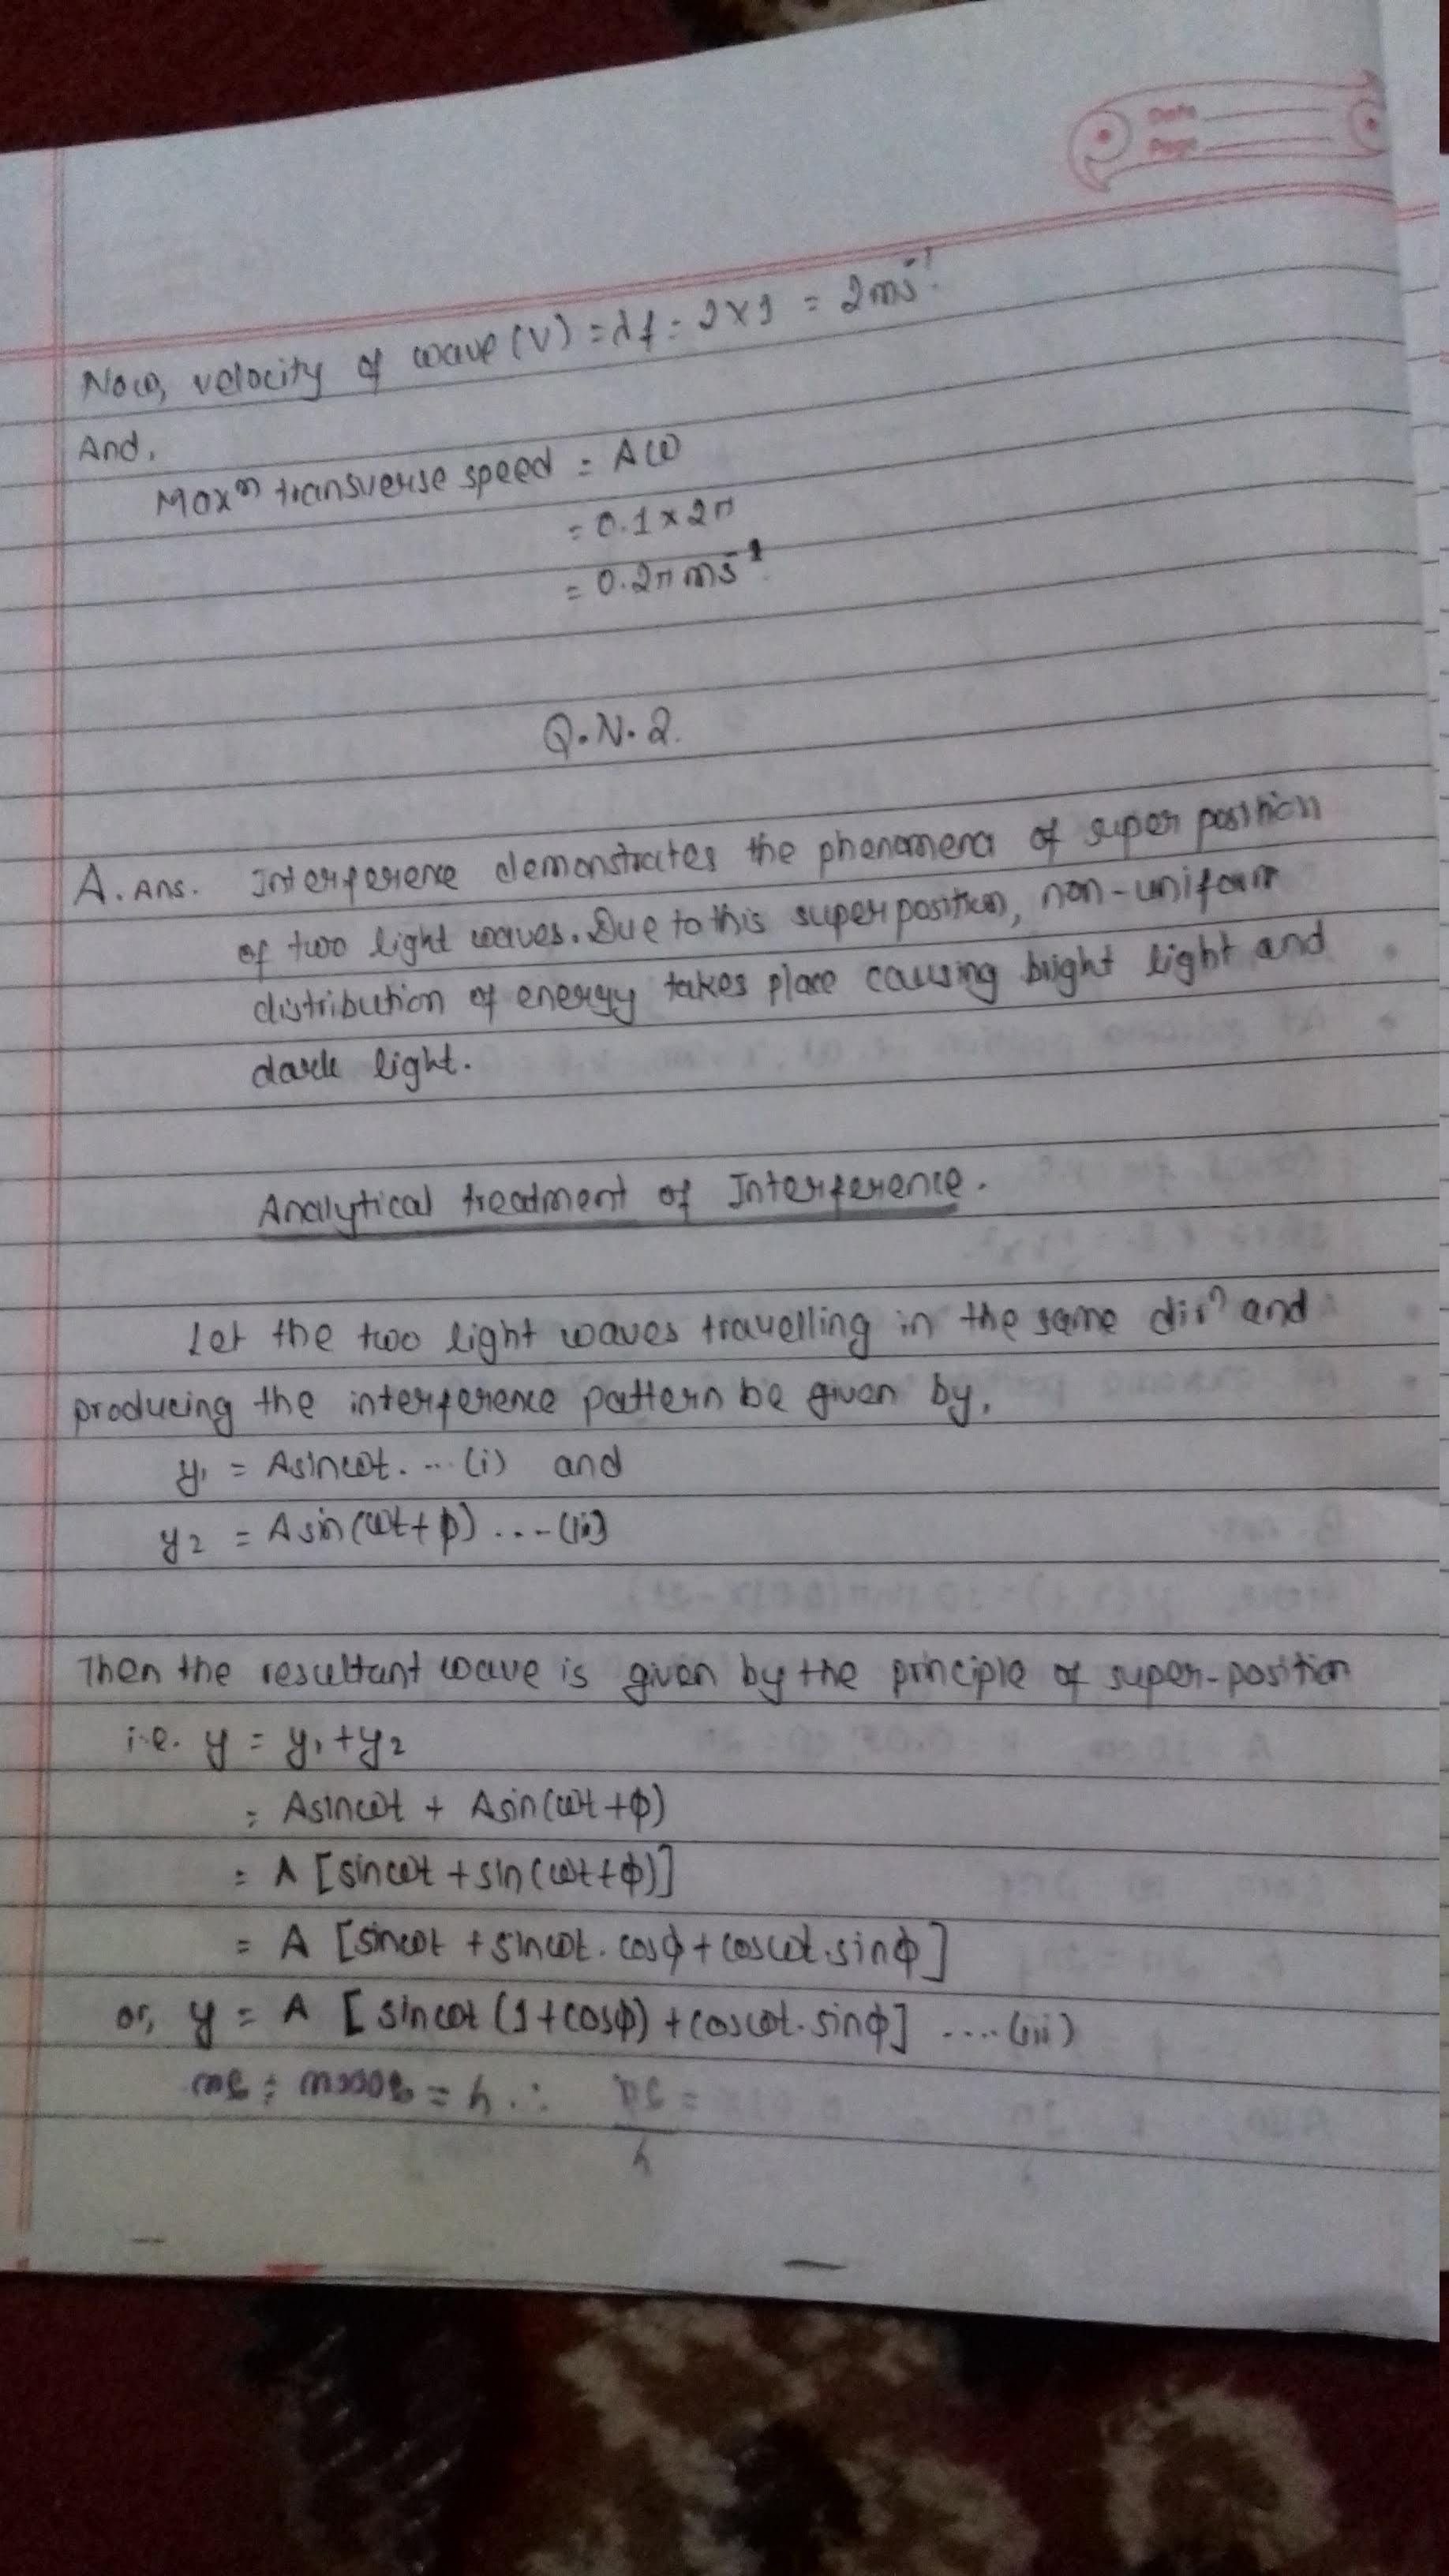 Date
Page
Now, velocity of wave (V) = λf = 2×1 = 2ms⁻¹.
And,
Maxᵐ transverse speed = Aω
= 0.1 × 2π
= 0.2π ms⁻¹
Q.N.2.
A. Ans. Interference demonstrates the phenomena of super position
of two light waves. Due to this superposition, non-uniform
distribution of energy takes place causing bright light and
dark light.
Analytical treatment of Interference.
Let the two light waves travelling in the same dirⁿ and
producing the interference pattern be given by,
y₁ = Asinωt. ... (i) and
y₂ = Asin(ωt+ϕ) ...-(ii)
Then the resultant wave is given by the principle of super-position
i.e. y = y₁+y₂
= Asinωt + Asin(ωt+ϕ)
= A [sinωt + sin(ωt+ϕ)]
= A [sinωt + sinωt. cosϕ + cosωt.sinϕ]
or, y = A [sinωt (1+cosϕ) + cosωt. sinϕ] .... (iii)